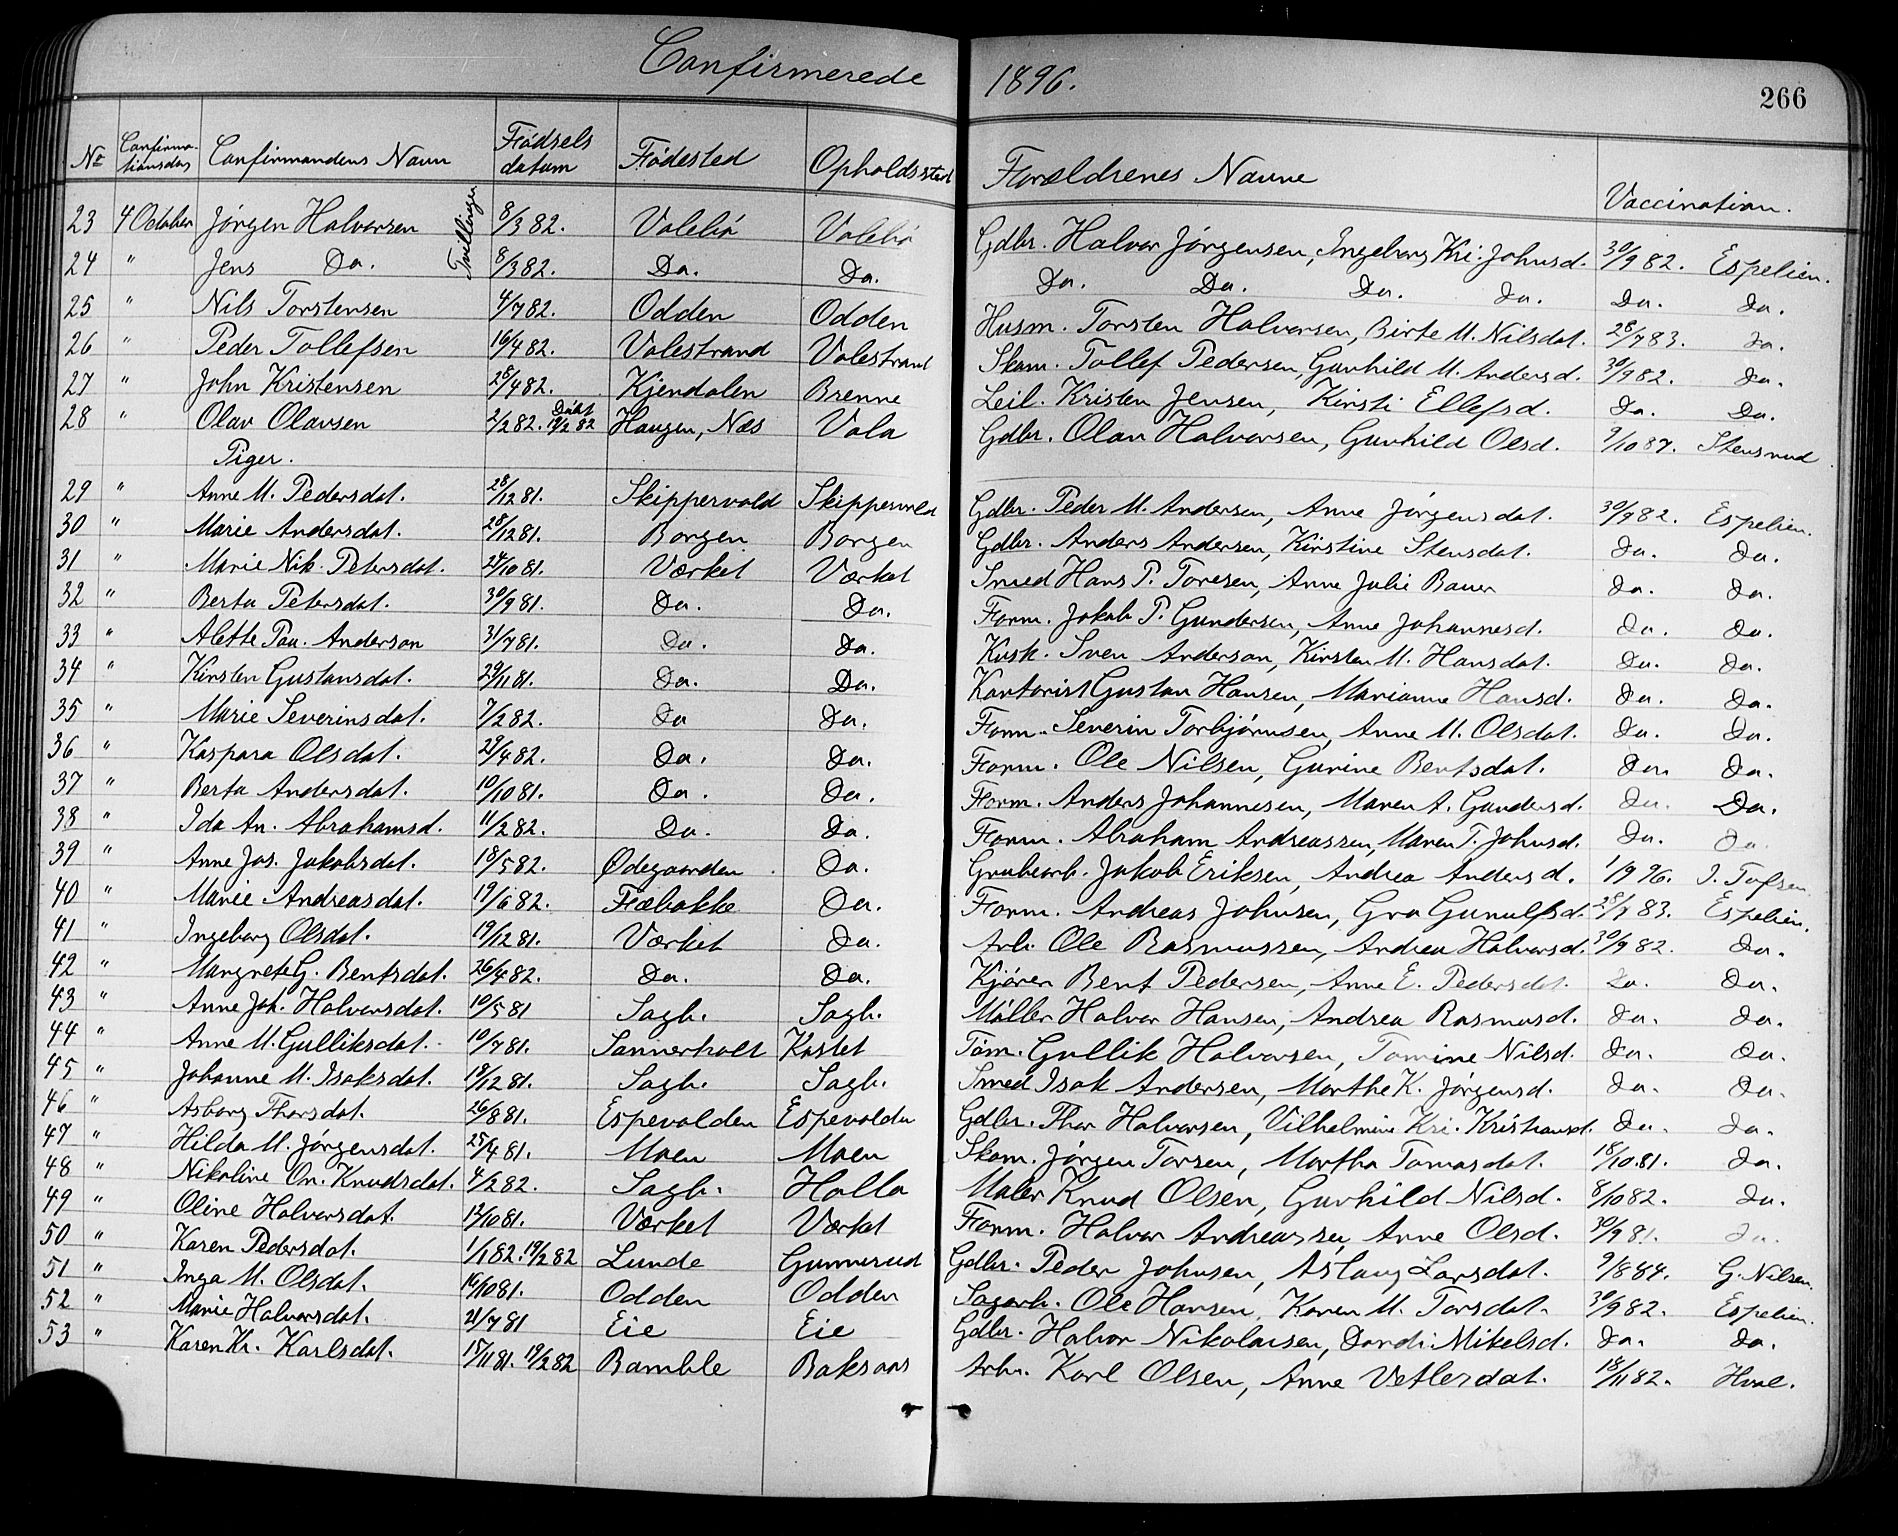 Confirmerede 1896. 266
No Confirmationsdag Confirmandens Navn Fødselsdatum Fødested Opholdssted Forældrenes Navne Vaccination.
23 4 October Jørgen Halvorsen Tvillinger 8/3 82. Valebø Valebø Gdbr. Halvor Jørgensen, Ingeborg Kri. Johnsd. 30/9 82. Espelien.
24 " Jens Do. 8/3 82. Do. Do. Do. Do. Do. do. Do. do.
25 " Nils Torstensen 4/7 82. Odden Odden Husm. Torsten Halvorsen, Birte M. Nilsdat. 28/7 83. do.
26 " Peder Tollefsen 16/4 82. Valestrand Valestrand Skom. Tollef Pedersen, Gunhild M. Andersd. 30/9 82. do.
27 " John Kristensen 28/4 82. Kjendalen Brenne Leil. Kristen Jensen, Kirsti Ellefsd. Do. Do.
28 " Olav Olavsen 2/2 82. Døbt 19/2 82 Haugen, Næs Vala Gdbr. Olav Halvorsen, Gunhild Olsd. 9/10 87. Stensrud
Piger.
29 " Anne M. Pedersdat. 28/12 81. Skippervold Skippervold Gdbr. Peder M. Andersen, Anne Jørgensdat. 30/9 82. Espelien.
30 " Marie Andersdat. 28/12 81. Borgen Borgen Gdbr. Anders Andersen, Kirstine Stensdat. Do. Do.
31 " Marie Nik. Petersdat. 24/10 81. Værket Værket Smed Hans P. Toresen, Anne Julie Bauer Do. Do.
32 " Berta Petersdat. 30/9 81. Do. Do. Form. Jakob P. Gundersen, Anne Johannesd. Do. Do.
33 " Alette Pau. Anderson 31/7 81. Do. Do. Kusk. Sven Anderson, Kirsten M. Hansdat. Do. Do.
34 " Kirsten Gustavsdat. 29/11 81. Do. Do. Kontorist Gustav Hansen, Marianne Hansd. Do. Do.
35 " Marie Severinsdat. 7/2 82. Do Do. Form. Severin Torbjørnsen, Anne M. Olsdat. Do. Do.
36 " Kaspara Olsdat. 29/4 82. Do. Do. Form. Ole Nilsen, Gurine Bentsdat. Do. Do.
37 " Berta Andersdat. 10/10 81. Do. Do. Form. Anders Johannesen, Maren A. Gundersd. Do. Do.
38 " Ida An. Abrahamsd. 11/2 82. Do. Do. Form. Abraham Andreassen, Maren T. Johnsd. Do. Do.
39 " Anne Jos. Jakobsdat. 18/5 82. Ødegaarden Do. Grubearb. Jakob Eriksen, Andrea Andersd. 1/9 96. J. Tofsen
40 " Marie Andreasdat. 19/6 82. Fæbakke Do. Form. Andreas Johnsen, Gro Gunulfsd. 28/7 83. Espelien.
41 " Ingeborg Olsdat. 19/12 81. Værket Do. Arb. Ole Rasmussen, Andrea Halvorsd. 30/9 82. Do.
42 " Margrete G. Bentsdat. 26/4 82. Do. Do. Kjører Bent Pedersen, Anne E. Pedersdat. Do. Do.
43 " Anne Joh. Halvorsdat. 10/5 81 Sagb. Sagb. Møller Halvor Hansen, Andrea Rasmusd. Do. Do.
44 " Anne M. Gulliksdat. 10/7 81. Sannerholt Kastet Tøm. Gullik Halvorsen, Tomine Nilsd. Do. Do.
45 " Johanne M. Isaksdat. 19/12 81. Sagb. Sagb. Smed Isak Andersen, Marthe K. Jørgensd. Do. Do.
46 " Asborg Thorsdat. 26/8 81. Espevolden Espevolden Gdbr. Thor Halvorsen, Vilhelmine Kri. Kristiansd. Do. Do.
47 " Hilda M. Jørgensdat. 25/4 81. Moen Moen Skom. Jørgen Torsen, Martha Tomasdat. 18/10 81. Do.
48 " Nikoline On. Knudsdat. 4/2 82. Sagb. Holla Maler Knud Olsen, Gunhild Nilsd. 8/10 82. Do.
49 " Oline Halvorsdat. 12/10 81. Værket Værket Form. Halvor Andreassen, Anne Olsd. 30/9 81. Do.
50 " Karen Pedersdat. 1/1 82. 19/2 82 Lunde Gunnerud Gdbr. Peder Johnsen, Aslaug Larsdat. 9/8 84. G. Nilsen.
51 " Inga M. Olsdat. 14/10 81. Odden Odden Sagarb. Ole Hansen, Karen M. Torsdat. 30/9 82. Espelien.
52 " Marie Halvorsdat. 21/7 81 Eie Eie Gdbr. Halvor Nikolaisen, Dordi Mikelsd. Do. Do.
53 " Karen Kr. Karlsdat. 15/11 81. 19/2 82 Bamble Baksaas Arb. Karl Olsen, Anne Vetlesdat. 18/11 82. Hval.